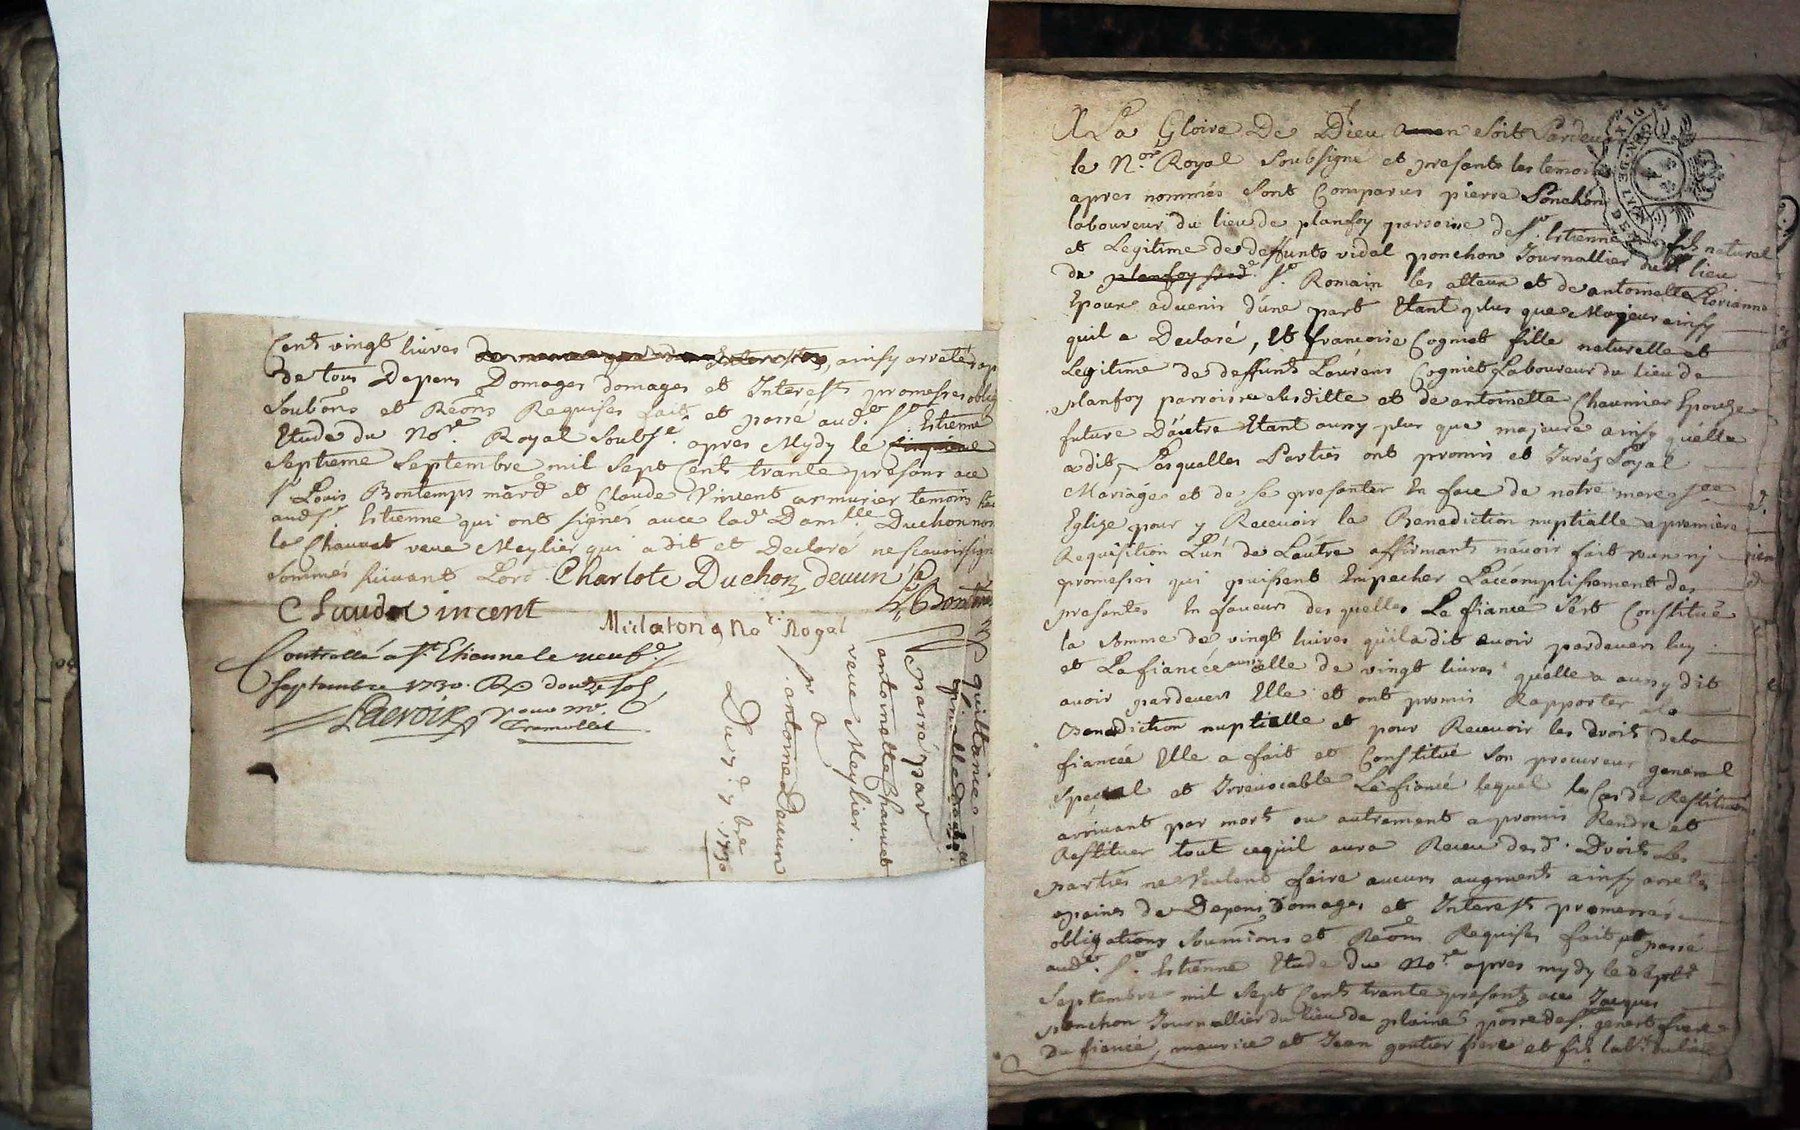 Cent vingt livres ainsy arreté
de tous Depens Domages domages et Interests promesses oblig
Soubõns et Reõns Requises fait et passé aud. St. Estienne
Etude du Nore. Royal Soubsé. apres Mydy le
Septieme Septembre mil Sept Cent trante presens
Sr. Louis Bontemps mard et Claude Vincent armurier temoins
aud St. Estienne qui ont signés avec lade. Damlle. Duchon non
la Chauvet veuve Meylier qui a dit et Declaré ne scavoir sign
sommés suivant Lord. Charlote Duchon devun
L. Bontems
Claude vincent
Mulaton No. Royal
Controllé a St. Etienne le neuf
Septembre 1730. R douze sols
Lacroix pour mr.
Tramollet
quittance
passé par
antoinette Chauvet
veuve Meylier
a
Sr. antoine Devun
Du 7e 7bre 1730
A La Gloire De Dieu amen Soit Pardevant
le Nore. Royal Soubsigné et presents les temoins
apres nommés Sont Comparus pierre Ponchon
laboureur du lieu de planfoy parroisse de St. Estienne fils naturel
et Legitime de deffunts vidal ponchon Journallier du lieu
de planfoy St. Romain les atteux et de antoinette Florianne
Epoux advenir d'une part Etant plus que Majeur ainsy
quil a Declaré, Et francoise Cogniet fille naturelle et
Legitime de deffunt Laurens Cogniet Laboureur du lieu de
planfoy parroisse susditte et de antoinette Chaumier Epouze
future D'autre Etant aussy plus que majeure ainsy qu'elle
a dit, Lesquelles Parties ont promis et Juréz Loyal
Mariage et de se presenter En face de notre mere Ste
Eglize pour y Recevoir la Benediction nuptialle a premiere
Requisition L'un de L'autre affirmants n'avoir fait ny
promesses qui puissent Empecher L'accomplissement des
presentes En faveurs desquelles Le fiancé s'est Constitué
la somme de vingt livres quil a dit avoir pardevers luy
et La fiancée aussi celle de vingt livres quelle a aussy dit
avoir pardevers Elle et ont promis Rapporter a la
Benediction nuptialle et pour Recevoir les droits de la
fiancée Elle a fait et Constitué son procureur general
special et Irrevocable Le fiancé lequel le Cas de Restitution
arrivant par mort ou autrement a promis Rendre et
Restituer tout cequil aura Receu desd. Droits Les
parties ne Veulent faire aucuns augments ainsy arreté
a peines de Depens Domages et Interests promesses
obligations soumions et Reõns Requises fait et passé
aud. St. Estienne Etude du Nore. apres mydy le sept
Septembre mil Sept Cent trante presents Jacques
ponchon Journallier du lieu de plaine posse de St. genest frere
Du fiancé, maurice et Jean goutier pere et fils labrs. du lieu